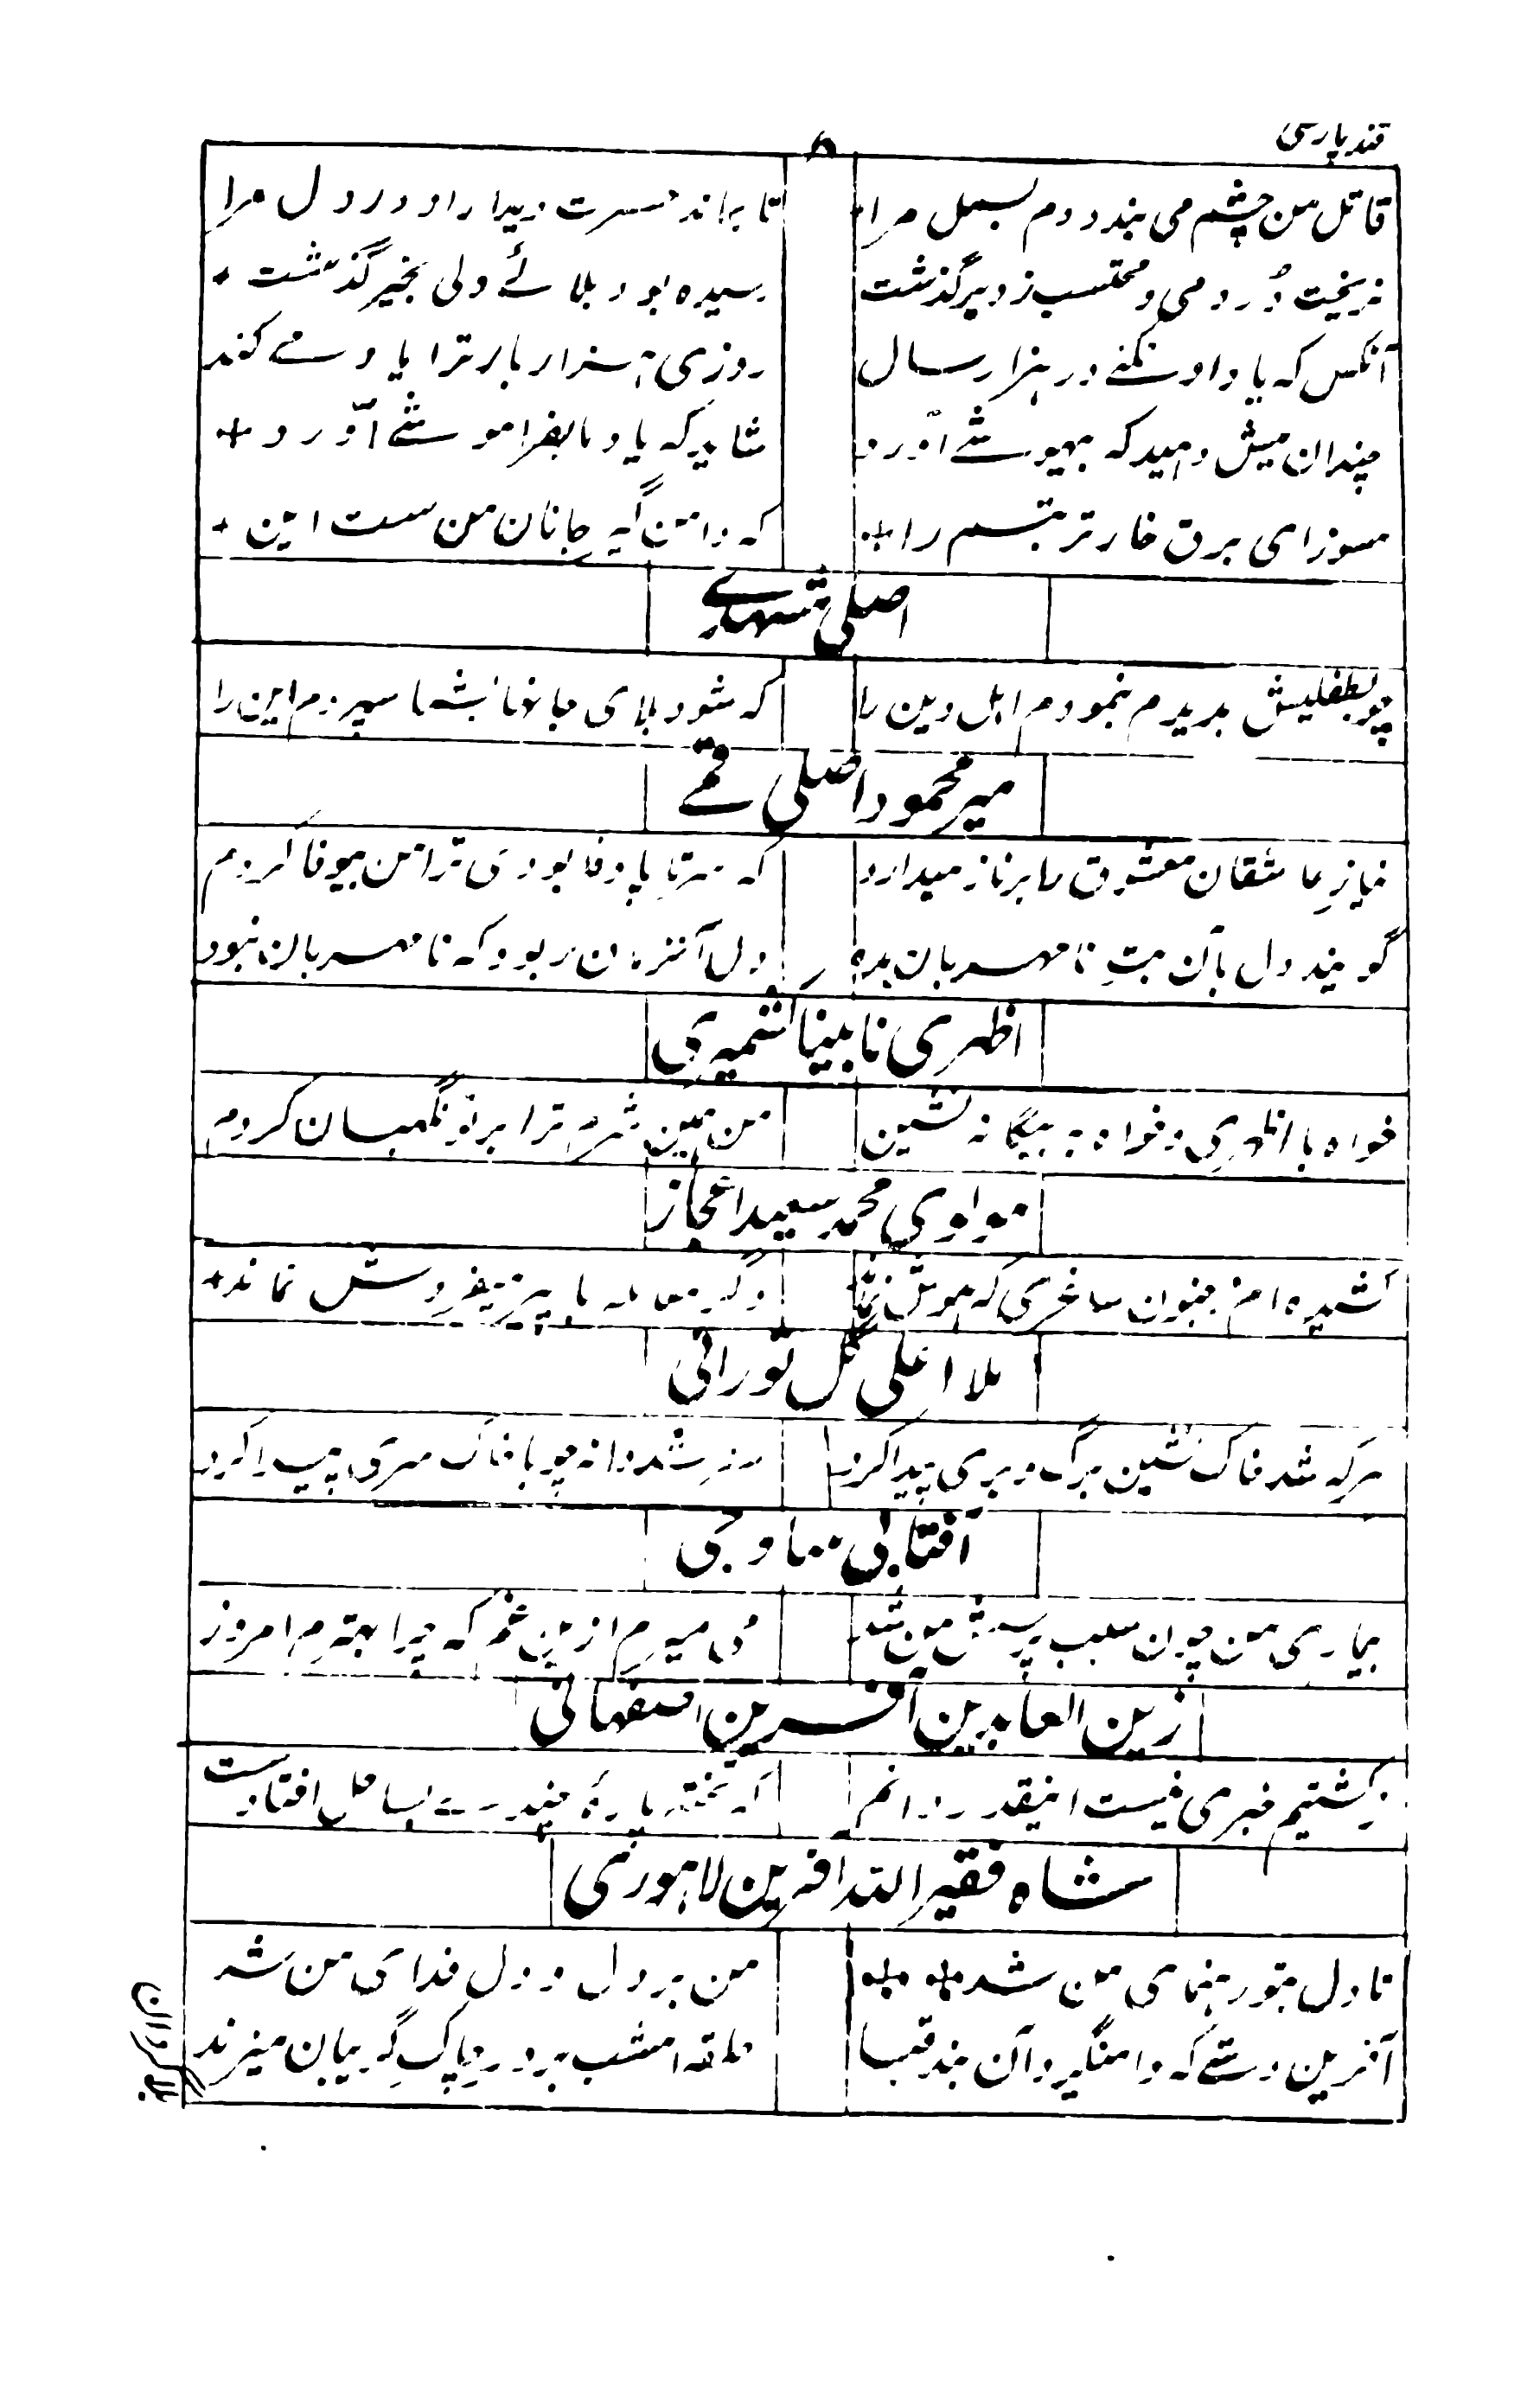 قند پارسی
۸
قاتل من چشم می بندد دم بسمل مرا تا بماند حسرت دیدار او در دل مرا
نریخت دُرد می و محتسب ز دیر گذشت رسیده بود بلائے ولی بخیر گذشت +
آنکس که یاد او نکنے در هزار سال روزی هزار بار ترا یاد مے کند
چندان میش دهید که بیهوشے آورد شاید که یاد ما بفراموشے آورد +
مسوز ای برق خار تربتم را + که دامن گیر جانان من ست این +
اصلی مشهدے
چو بطفلیش بدیدم بنمودم اهل دین را که شود بلای جانها بشما سپردم این را
میر محمود اصلی قمے
نیازِ عاشقان معشوق را بر ناز میدارد که سرتا پا وفا بودی ترا من بیوفا کردم
گویند دل بآن بتِ نامهربان مده دل آنزمان ربود که نامهربان نبود
اظهری نابینا کشمیری
خواه با اظهری و خواه به بیگانه نشین من همین شرم ترا بر تو نگهبان کردم
مولوی محمد سعید اعجاز
کشیده ام ز جنون ساغری که هوش نماند دگر معامله با پیر میفروش نماند +
ملا اعلی گل تورانی
هر که شد خاک نشین برگ و بری پیدا کرد سبز شد دانه چو با خاک سری پیدا کرد
آفتابی ساوجی
بیماری من چون سبب پرسش من شد می میرم ازین غم که چرا بهترم امروز
زین العابدین آفرین اصفهانی
ز کشتیم خبری نیست اینقدر دانم که تخته پارهٔ چندے بساحل افتادست
شاه فقیر الله آفرین لاهوری
تا دل بتو رهنمای من شد من بر دل و دل فدای من شد
آفرین دستے که دامنگیر آن بند قبا حلقه امشب بر در چاکِ گریبان میزند